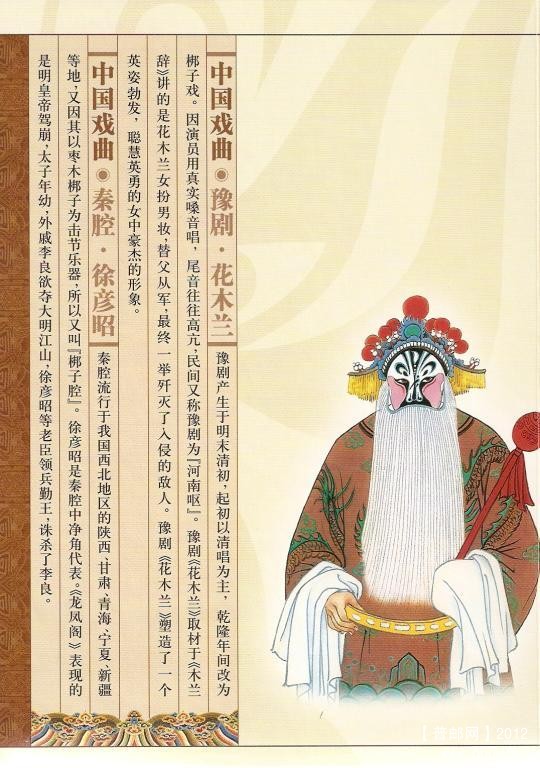 中国戏曲◉豫剧·花木兰
豫剧产生于明末清初，起初以清唱为主，乾隆年间改为
梆子戏。因演员用真实嗓音唱，尾音往往高亢，民间又称豫剧为『河南呕』。豫剧《花木兰》取材于《木兰
辞》讲的是花木兰女扮男妆，替父从军，最终一举歼灭了入侵的敌人。豫剧《花木兰》塑造了一个
英姿勃发，聪慧英勇的女中豪杰的形象。
中国戏曲◉秦腔·徐彦昭
秦腔流行于我国西北地区的陕西、甘肃、青海、宁夏、新疆
等地，又因其以枣木梆子为击节乐器，所以又叫『梆子腔』。徐彦昭是秦腔中净角代表。《龙凤阁》表现的
是明皇帝驾崩，太子年幼，外戚李良欲夺大明江山，徐彦昭等老臣领兵勤王，诛杀了李良。
2012